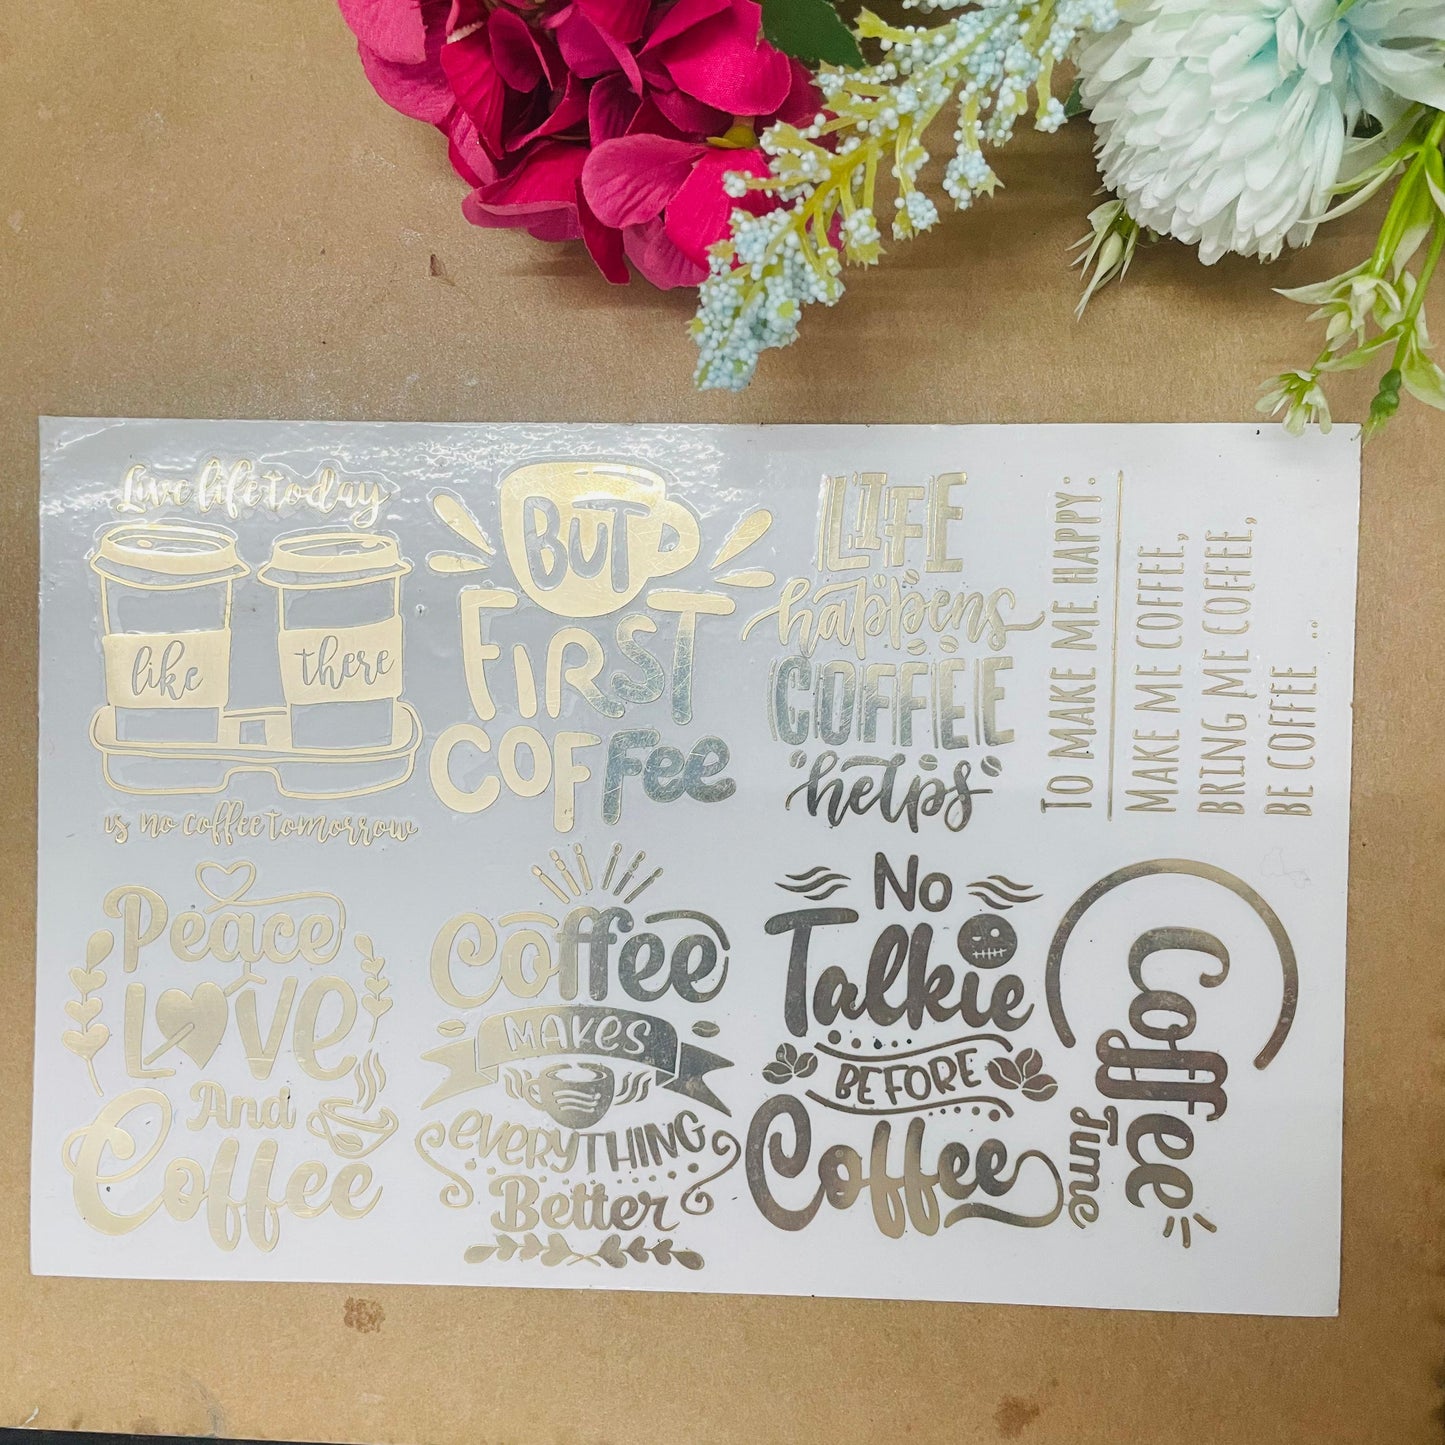 Live life today
like
there
is no coffee tomorrow
BUT
FIRST
COFFEE
LIFE
happens
COFFEE
helps
TO MAKE ME HAPPY:
MAKE ME COFFEE,
BRING ME COFFEE,
BE COFFEE ..
Peace
LOVE
And
Coffee
Coffee
MAKES
EVERYTHING
Better
No
Talkie
BEFORE
Coffee
Coffee
Time